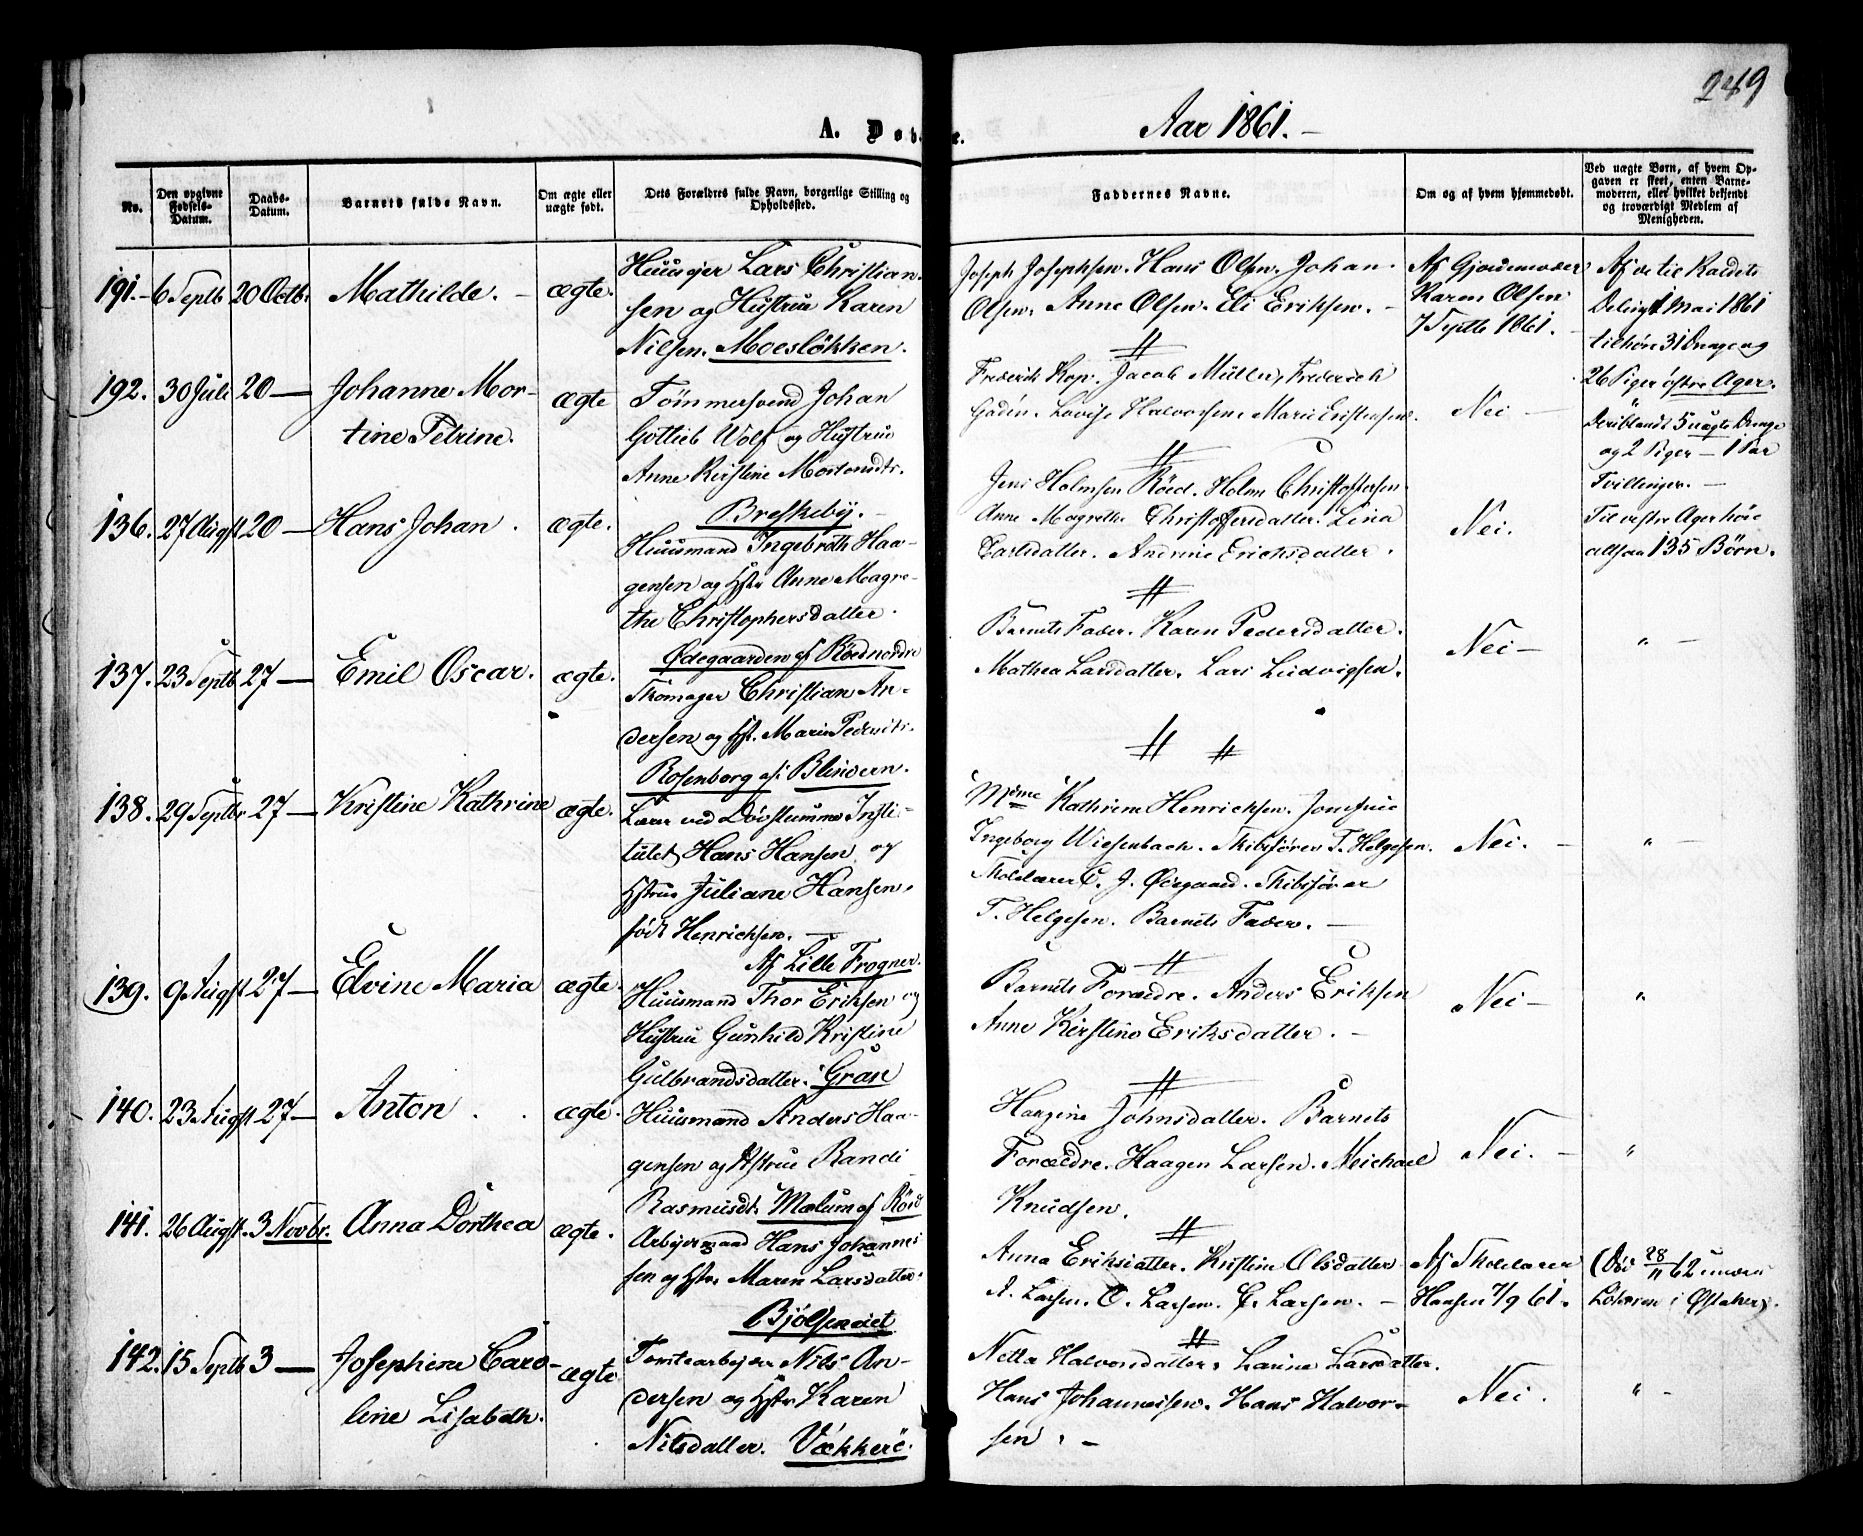 249
A. Døb
te.
Aar 1861. –
No.
Den opgivne Fødsels-Datum.
Daabs-Datum.
Barnets fulde Navn.
Om ægte eller uægte født.
Dets Forældres fulde Navn, borgerlige Stilling og Opholdssted.
Faddernes Navne.
Om og af hvem hjemmedøbt.
Ved uægte Børn, af hvem Opgaven er skeet, enten Barnemoderen, eller hvilket bekjendt og troværdigt Medlem af Menigheden.
191. – 6 Septb 20 Octb. Mathilde. – ægte.
Huusejer Lars Christian-
sen og Hustrue Karen
Nilsen. Moesløkken.
Joseph Josephsen. Hans Olsen. Johan
Olsen. Anne Olsen. Eli Eriksen. –
Af Gjordemoder
Karen Olsen
7 Septb 1861. –
192. 30 Juli 20 — Johanne Mor-
tine Petrine. ægte
Tømmersvend Johan
Gottlieb Wolf og Hustrue
Anne Kirstine
Breskeby. –
Frederik Kop. Jacob Müller, Frederick
Gadén. Lovise Halvorsen. Marie
Nei –
136. 27 Augst 20 — Hans Johan. ægte.
Huusmand Ingebreth Haa-
gensen og Hstr Anne Magre-
the Christophersdatter.
Ødegaarden af Röed nordre
Jens Holmsen Röed. Holm Christoffersen.
Anne Margrethe Christoffersdatter. Lina
Carlsdatter. Andrine Erichsdatter.
Nei.
Deling 1 Mai 1861
tilhøre 31 Drenge og
26 Piger østre Ager.
Deriblandt 5 uægte Drenge
og 2 Piger – 1 Par
Tvillinger. –
Til vestre Ager høre
altsaa 135 Børn.
137. 23 Septb 27 — Emil Oscar. ægte.
Skomager Christian An-
dersen og Hst. Marie
Rosenborg af Blindern.
Barnets Fader. Karen Pedersdatter.
Mathea Larsdatter. Lars Ludvigsen.
Nei – " –
138. 29 Septbr 27 — Kristine Kathrine ægte.
Lærer ved Døvstumme Insti-
tutet Hans Hansen og
Hstrue Juliane Hansen,
født Henrichsen. –
Af Lille Frogner.
Mdme Kathrine Henrichsen.
Ingeborg Wiesenbach. Kibsfører T. Helgesen.
Skolelærer C. J. Ødegaard. Skibsfører
T. Helgesen. Barnets Fader. –
Nei. – " –
139. 9 Augst 27 — Elvine Maria ægte.
Huusmand Thor Eriksen og
Hustrue Gunhild Kristine
Gulbrandsdatter. Gran
Barnets Forældre. Anders Eriksen
Anne Kirstine Eriksdatter. –
Nei – "
140. 23 Augst 27 — Anton . . ægte.
Huusmand Anders Haa-
gensen og Hstrue Randi
Rasmusdt. Mælum af Röed
Haagine Johnsdatter. Barnets
Forældre. Haagen Larsen. Meichael
Knudsen.
Nei. – "
141. 26 Augst. 3 Novbr. Anna Dorthea ægte.
Arbejdsmand Hans Johannes-
sen og Hstr Maren Larsdatter.
Bjölsenviet
Anna Eriksdatter. Kristine Olsdatter
A. Larsen. O. Larsen. E. Larsen. –
Af Skolelærer
Hansen 7/9 61.
(Død 28/11 62
142. 15 Septb 3 — Josephine Caro-
line Lisabeth. ægte
Tomtearbejder Nils An-
dersen og Hstr Karen
Nilsdatter. Vækkerö.
Netta Halvorsdatter. Larine Larsdatter.
Hans Johannessen. Hans Halvor-
sen. –
Nei. " –